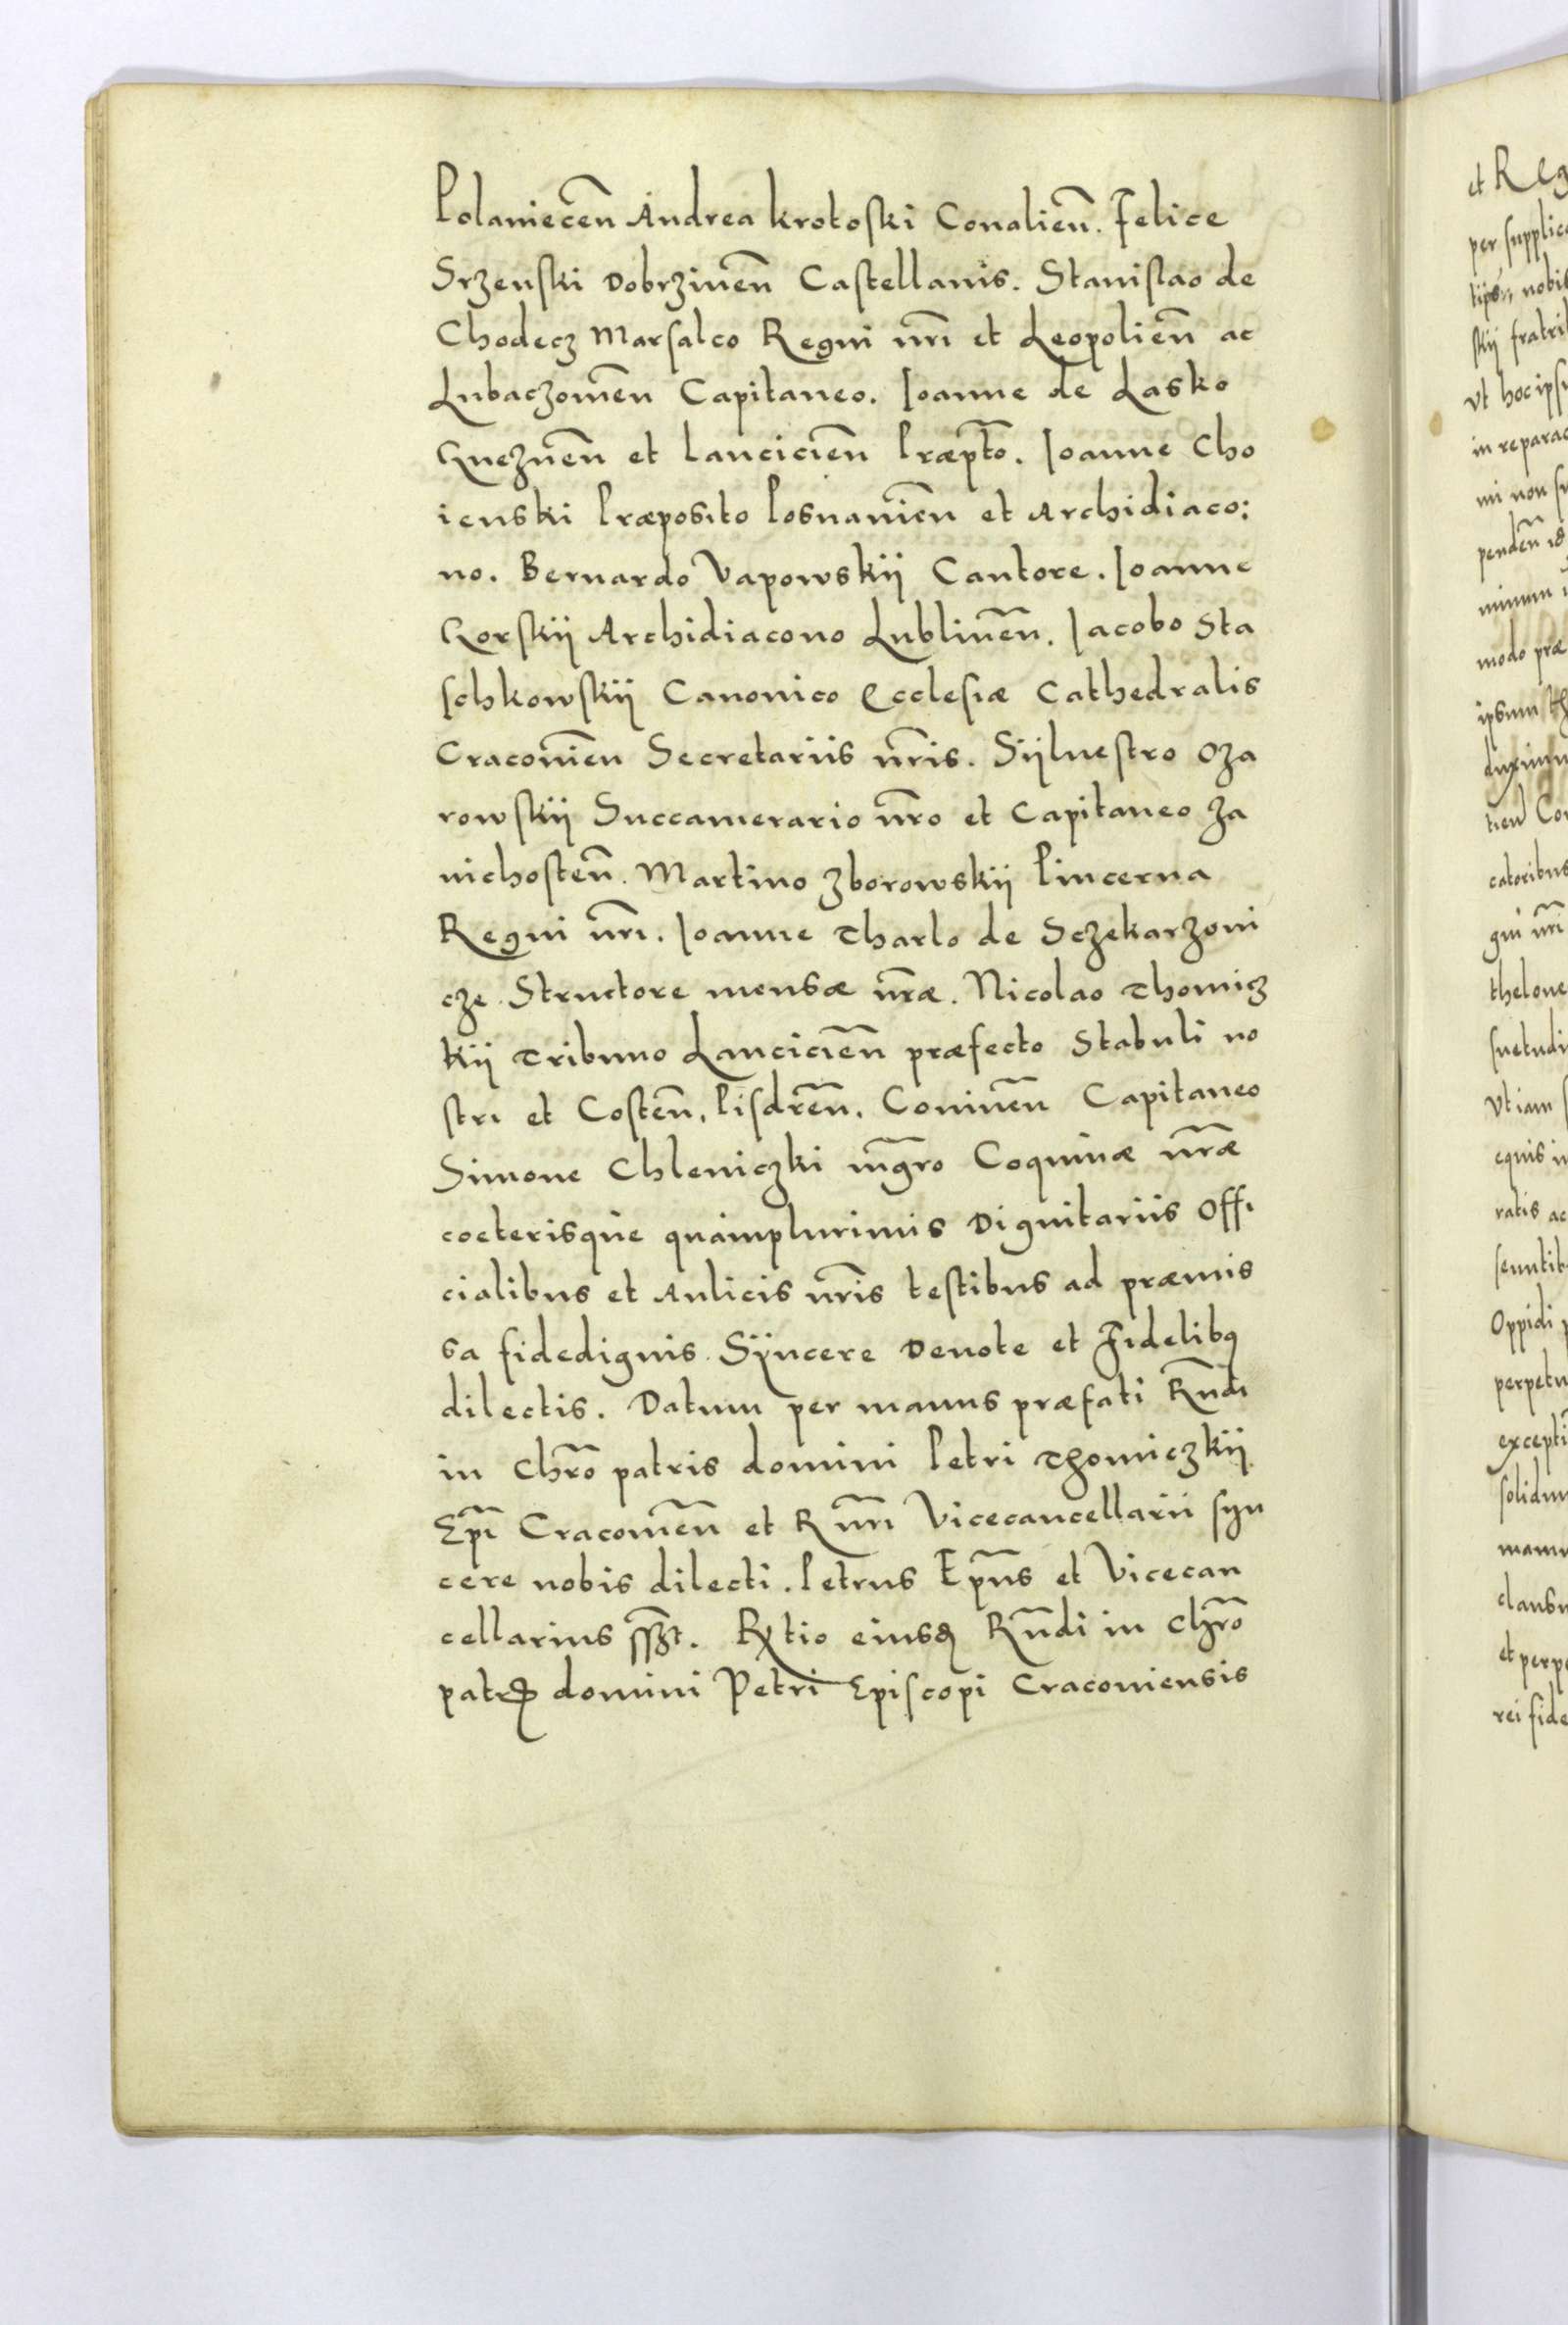 Polaniecen̄ Andrea Krotoſki Conalien̄. Felice
Srzenſki Dobrzinen̄ Caſtellanis. Staniſlao de
Chodecz Marſalco Regni nr̄i et Leopolien̄ ac
Lubaczouien̄ Capitaneo. Ioanne de Lasko
Gneznen̄ et Lancicien̄ Præpt̄o. Ioanne Cho
ienski Præposito Posnanien̄ et Archidiaco:
no. Bernardo Vapowskij Cantore. Ioanne
Gorſkij Archidiacono Lublinen̄. Iacobo Sta
ſchkowſkij Canonico Eccleſiæ Cathedralis
Cracouien̄ Secretariis nr̄is. Sijlueſtro Oza
rowſkij Succamerario nr̄o et Capitaneo Za
nichoſten̄. Martino Zborowskij Pincerna
Regni nr̄i. Ioanne Tharlo de Sczekarzoui
cze Structore mensæ nr̄æ. Nicolao Thomicz
kij Tribuno Lancicien̄ præfecto Stabuli no
ſtri et Coſten̄. Piſdren̄. Coninen̄ Capitaneo
Simone Chleniczki mḡro Coquinæ nr̄æ
cœterisque quàmplurimis Dignitariis Offi
cialibus et Aulicis nr̄is teſtibus ad præmis
sa fidedignis. Sÿncere Deuote et Fidelibꝰ
dilectis. Datum per manus præfati Rn̄di
in Chr̄o patris domini Petri Thomiczkij
Ep̄i Cracouien̄ et R nr̄i Vicecancellarii ſyn
cere nobis dilecti. Petrus Ep̄us et Vicecan
cellarius ſſz̄t. Rȩtio eiusdꝫ Rn̄di in Chr̄o
patrꝭ domini Petri Epiſcopi Cracouiensis
et Reg
per ſupplica
nobis
ſkij fratri
Vt hoc ipſu
in reparac
mi non ſu
penden̄ is
minum
modo præ
ipsum th
duximu
tien̄ Con
catoribus
gni nr̄i
thelone
ſuetudi
Vt iam ſ
equis
ratis ac
Oppidi p
perpetu
excepti
solidum
manu
clausu
et perpe
rei fide